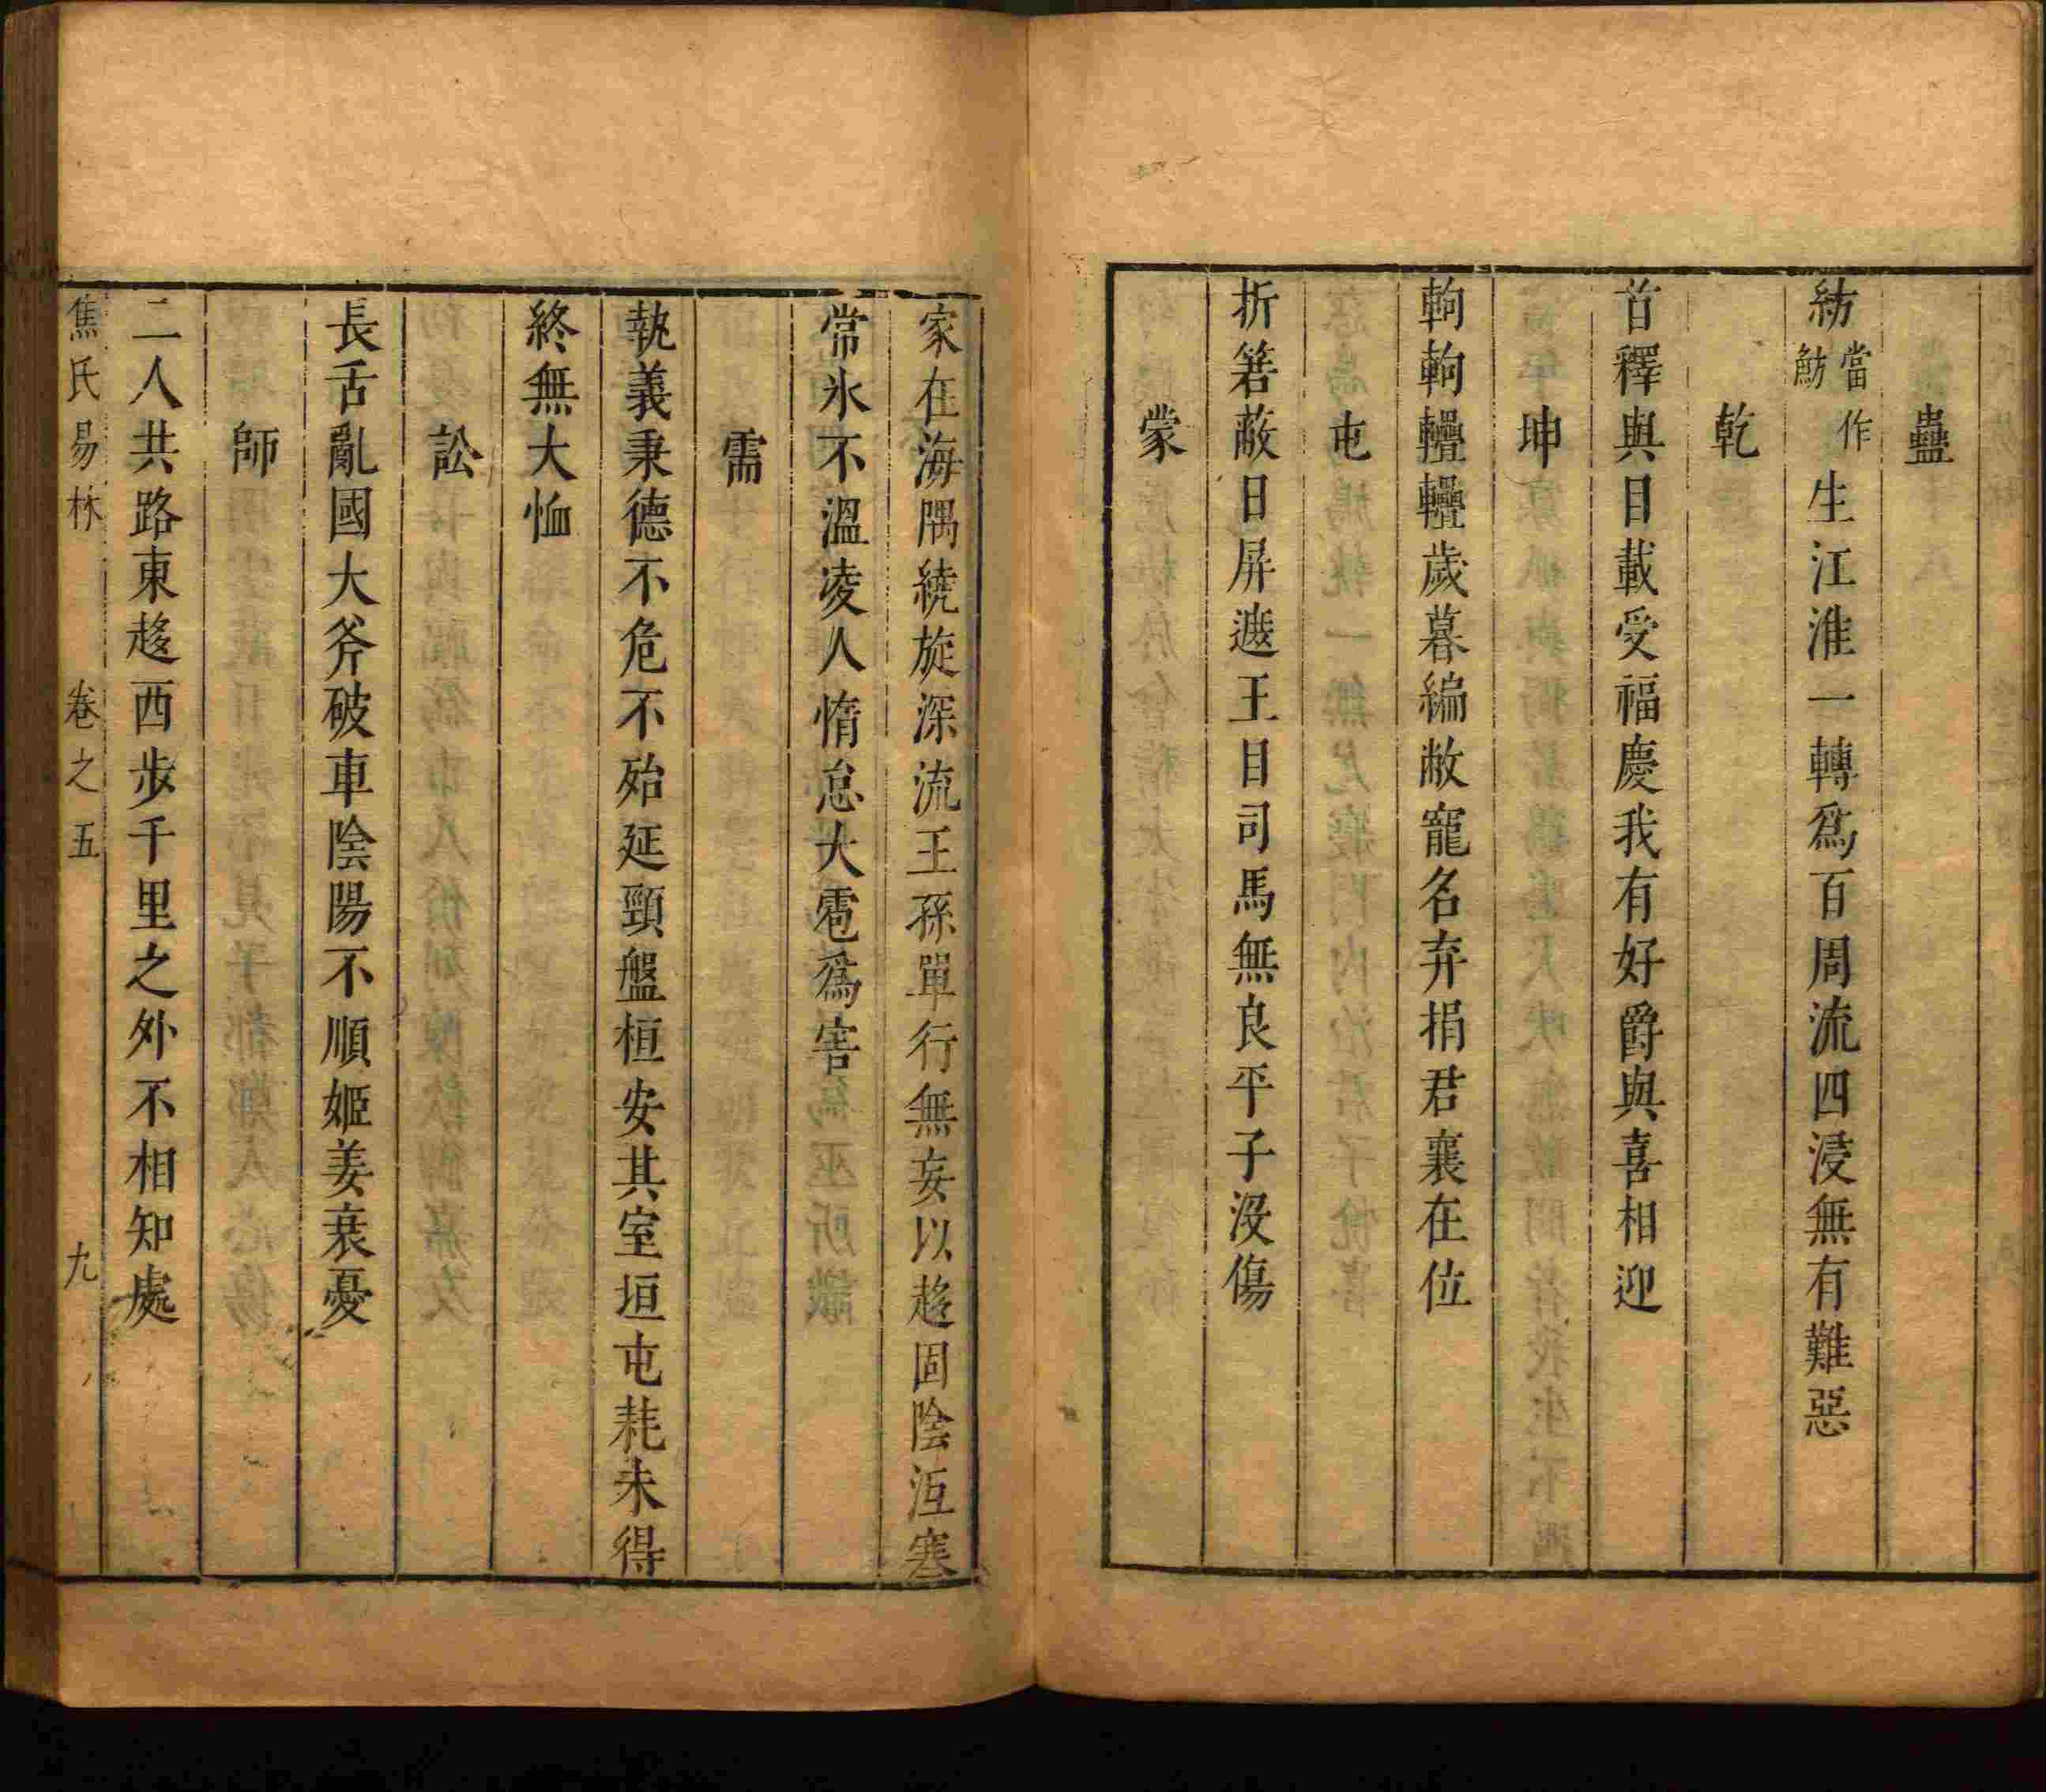 蠱
紡當作魴生江淮一轉爲百周流四浸無有難惡
乾
首釋與目載受福慶我有好爵與喜相迎
坤
軥軥轠轠歲暮編敝寵名弃捐君襄在位
屯
折箬蔽日屏遮王目司馬無良平子没傷
蒙
家在海隅繞旋深流王孫單行無妄以趍固陰沍塞
常氷不溫凌人惰怠大雹爲害
需
執義秉德不危不殆延頸盤桓安其室垣屯耗未得
終無大恤
訟
長舌亂國大斧破車陰陽不順姬姜衰憂
師
二人共路東趍西步千里之外不相知處
焦氏易林 卷之五 九